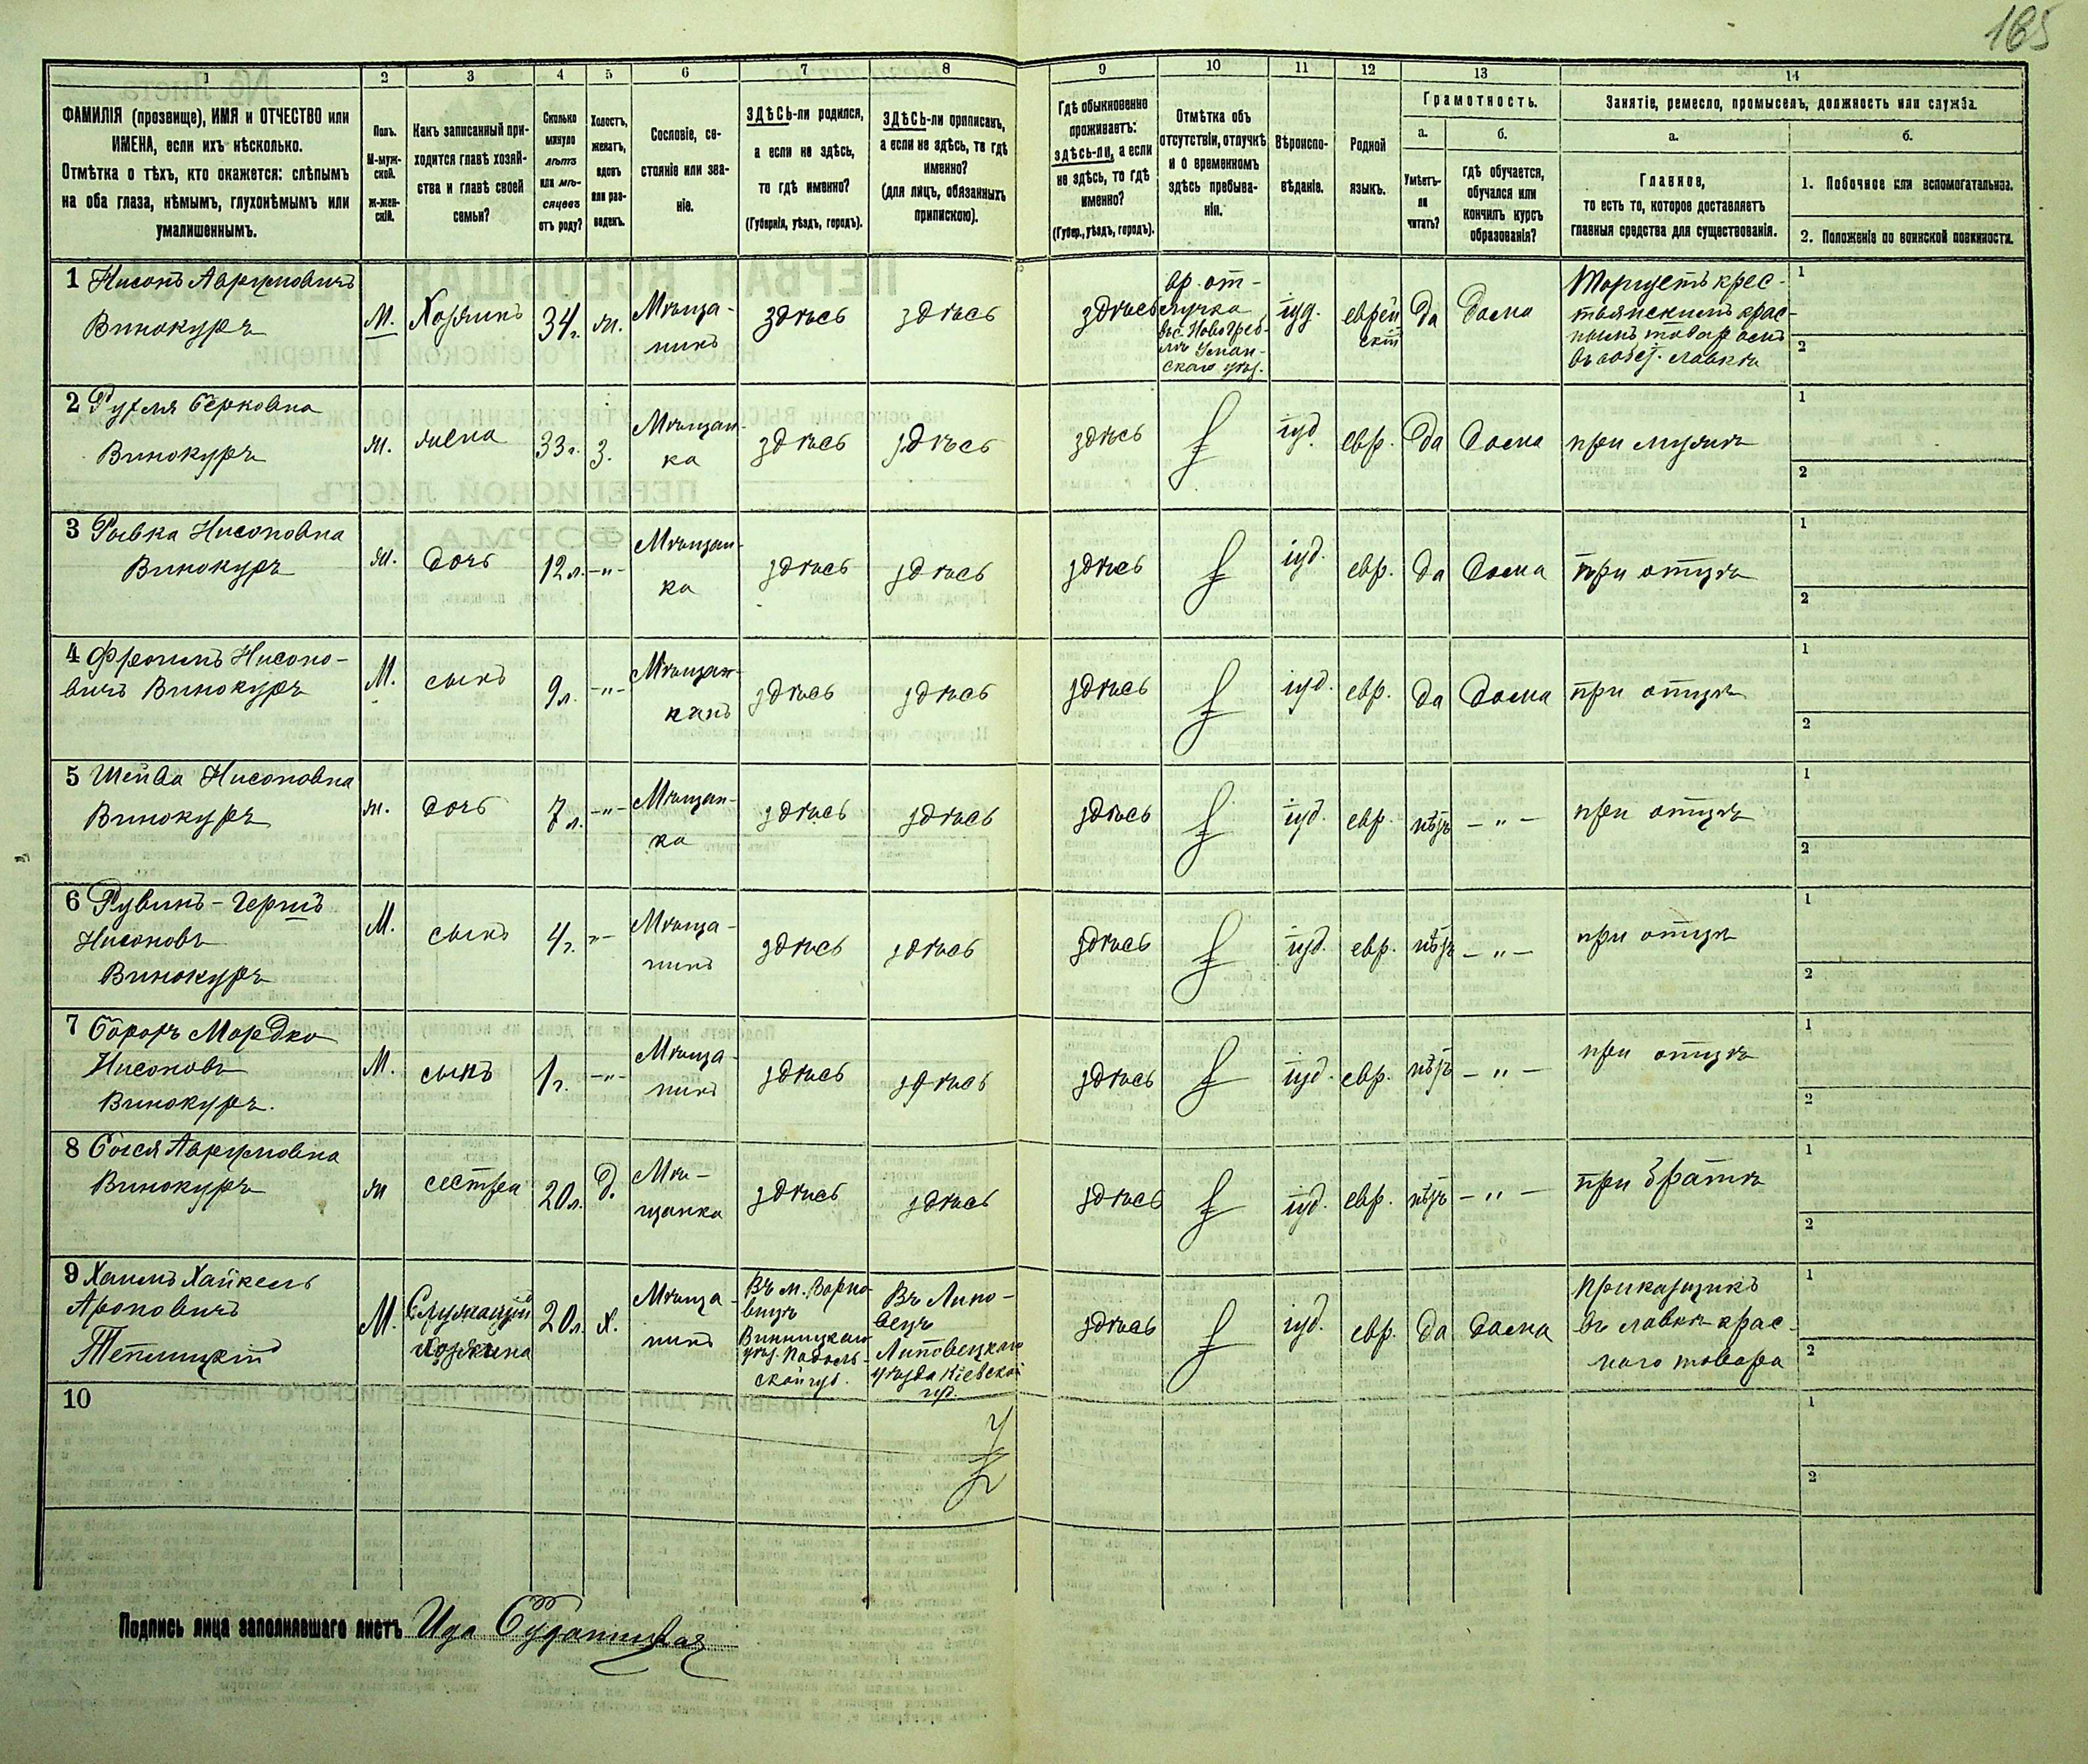 165
1 2 3 4 5 6 7 8 9 10 11 12 13 14
ФАМИЛІЯ (прозвище), ИМЯ и ОТЧЕСТВО или
ИМЕНА, если ихъ нѣсколько.
Отмѣтка о тѣхъ, кто окажется: слѣпымъ
на оба глаза, нѣмымъ, глухонѣмымъ или
умалишеннымъ.
Полъ.
М-муж-
ской.
ж-жен-
скій.
Какъ записанный при-
ходится главѣ хозяй-
ства и главѣ своей
семьи?
Сколько
минуло
лѣтъ
или мѣ-
сяцевъ
отъ роду?
Холостъ,
женатъ,
вдовъ
или раз-
веденъ.
Сословіе, со-
стояніе или зва-
ніе.
ЗДѢСЬ-ли родился,
а если не здѣсь,
то гдѣ именно?
(Губернія, уѣздъ, городъ).
ЗДѢСЬ-ли приписанъ,
а если не здѣсь, то гдѣ
именно?
(для лицъ, обязанныхъ
припискою).
Гдѣ обыкновенно
проживаетъ:
здѣсь-ли, а если
не здѣсь, то гдѣ
именно?
(Губер., уѣздъ, городъ).
Отмѣтка объ
отсутствіи, отлучкѣ
и о временномъ
здѣсь пребыва-
ніи.
Вѣроиспо-
вѣданіе.
Родной
языкъ.
Грамотность.
а.
Умѣетъ-
ли
читать?
б.
гдѣ обучается,
обучался или
кончилъ курсъ
образованія?
Занятіе, ремесло, промыселъ, должность или служба.
а.
Главное,
то есть то, которое доставляетъ
главныя средства для существованія.
б.
1. Побочное или вспомогательное.
2. Положеніе по воинской повинности.
1 Нисонъ Аврумовичъ
Винокуръ
М.
Хозяинъ
34 г.
ж.
Мѣща-
нинъ
здѣсь
здѣсь
здѣсь
вр. от-
лучка
въ с. Новогреб-
лѣ Уман-
скаго уѣз.
іуд.
еврей
скій
да
дома
Торгуетъ крес-
тьянскимъ крас-
нымъ товаромъ
въ лавкѣ
1
2
2 Рухля Берковна
Винокуръ
ж.
жена
33 г.
З.
Мѣщан-
ка
здѣсь
здѣсь
здѣсь
іуд.
евр.
да
дома
при мужѣ
1
2
3 Рывка Нисоновна
Винокуръ
ж.
дочь
12 л.
-"-
Мѣщан-
ка
здѣсь
здѣсь
здѣсь
іуд.
евр.
да
дома
при отцѣ
1
2
4 Фроимъ Нисоно-
вичъ Винокуръ
М.
сынъ
9 л.
-"-
здѣсь
здѣсь
здѣсь
іуд.
евр.
да
дома
при отцѣ
1
2
5 Шейва Нисоновна
Винокуръ
ж.
дочь
7 л.
-"-
Мѣщан-
ка
здѣсь
здѣсь
здѣсь
іуд.
евр.
нѣтъ
-"-
при отцѣ
1
2
6 Рувинъ-Гершъ
Нисоновъ
Винокуръ
М.
сынъ
4 г.
-"-
Мѣща-
нинъ
здѣсь
здѣсь
здѣсь
іуд.
евр.
нѣтъ
-"-
при отцѣ
1
2
7 Мордко
Нисоновъ
Винокуръ.
М.
сынъ
1 г.
-"-
Мѣща-
нинъ
здѣсь
здѣсь
здѣсь
іуд.
евр.
нѣтъ
-"-
при отцѣ
1
2
8 Сося Аврумовна
Винокуръ
ж
сестра
20 л.
д.
Мѣ-
щанка
здѣсь
здѣсь
здѣсь
іуд.
евр.
нѣтъ
-"-
при братѣ
1
2
9 Хаимъ Хайкель
Ароновичъ
Теплицкій
М.
Служащій
хозяина
20 л.
х.
Мѣща-
нинъ
Въ м. Ворно-
вицѣ
Винницкаго
уѣз. Подоль-
ской губ.
Въ Липо-
вецъ
Липовецкаго
уѣзда Кіевской
губ.
здѣсь
іуд.
евр.
да
дома
Прикащикъ
въ лавкѣ крас-
наго товара
1
2
10
1
2
Подпись лица заполнявшаго листъ